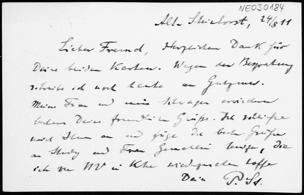 NEOJ0184
Alt Steinhorst, 24/8 11
Lieber Freund, Herzlichen Dank für
Deine beiden Karten. Wegen der Besprechung
schreibe ich noch heute an
Meine Frau und mein Schwager erwidern
bestens Deine freundlichen Grüße. Ich schließe
mich Ihnen an und füge die besten Grüße
an und Frau Gemahlin die
ich im in hoffe
Dein P. St.